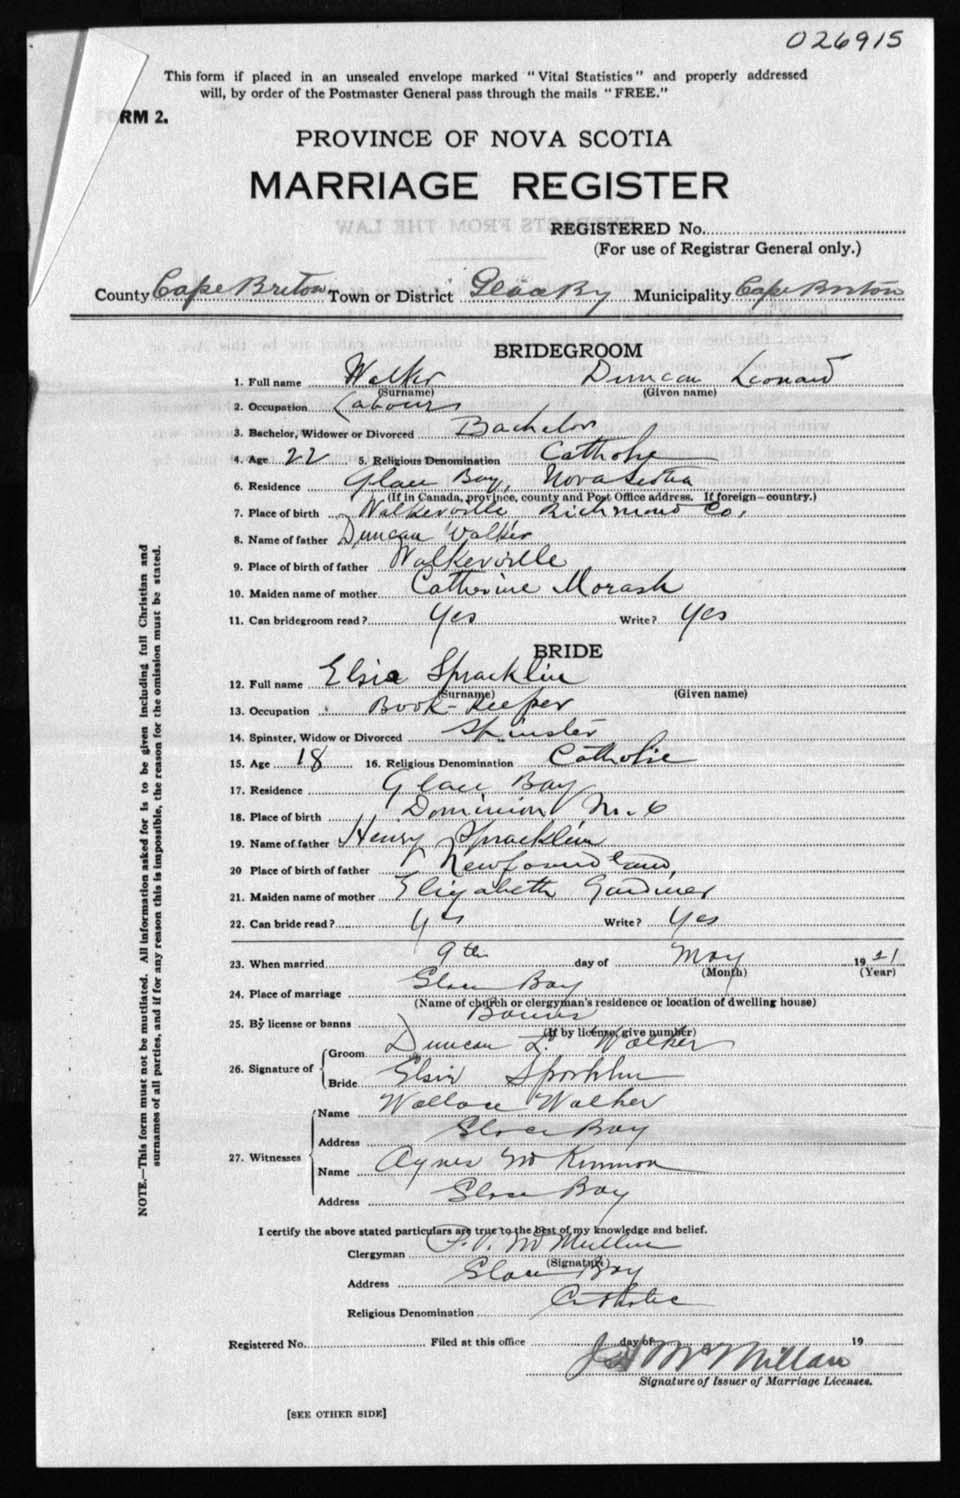 026915
This form if placed in an unsealed envelope marked "Vital Statistics" and properly addressed
will, by order of the Postmaster General pass through the mails "FREE."
FORM 2.
PROVINCE OF NOVA SCOTIA
MARRIAGE REGISTER
REGISTERED No.
(For use of Registrar General only.)
County Cape Breton Town or District Glace Bay Municipality Cape Breton
BRIDEGROOM
1. Full name Walker Duncan Leonard
(Surname) (Given name)
2. Occupation Labourer
3. Bachelor, Widower or Divorced Bachelor
4. Age 22 5. Religious Denomination Catholic
6. Residence Glace Bay, Nova Scotia
(If in Canada, province, county and Post Office address. If foreign—country.)
7. Place of birth Walkerville Richmond Co,
8. Name of father Duncan Walker
9. Place of birth of father Walkerville
10. Maiden name of mother Catherine Morash
11. Can bridegroom read? Yes Write? Yes
BRIDE
12. Full name Elsie Spracklin
(Surname) (Given name)
13. Occupation Book-Keeper
14. Spinster, Widow or Divorced Spinster
15. Age 18 16. Religious Denomination Catholic
17. Residence Glace Bay
18. Place of birth Dominion No. 6
19. Name of father Henry Spracklin
20 Place of birth of father Newfoundland
21. Maiden name of mother Elizabeth Gardiner
22. Can bride read? Yes Write? Yes
23. When married 9th day of May 1921
(Month) (Year)
24. Place of marriage Glace Bay
(Name of church or clergyman's residence or location of dwelling house)
25. By license or banns Banns
(If by license, give number)
26. Signature of Groom Duncan L. Walker
Bride Elsie Spracklin
27. Witnesses Name Wallace Walker
Address Glace Bay
Name Agnes McKinnon
Address Glace Bay
I certify the above stated particulars are true to the best of my knowledge and belief.
Clergyman McMullin
(Signature)
Address Glace Bay
Religious Denomination Catholic
Registered No. Filed at this office day of 19
McMillan
Signature of Issuer of Marriage Licenses.
[SEE OTHER SIDE]
NOTE.—This form must not be mutilated. All information asked for is to be given including full Christian and
surnames of all parties, and if for any reason this is impossible, the reason for the omission must be stated.